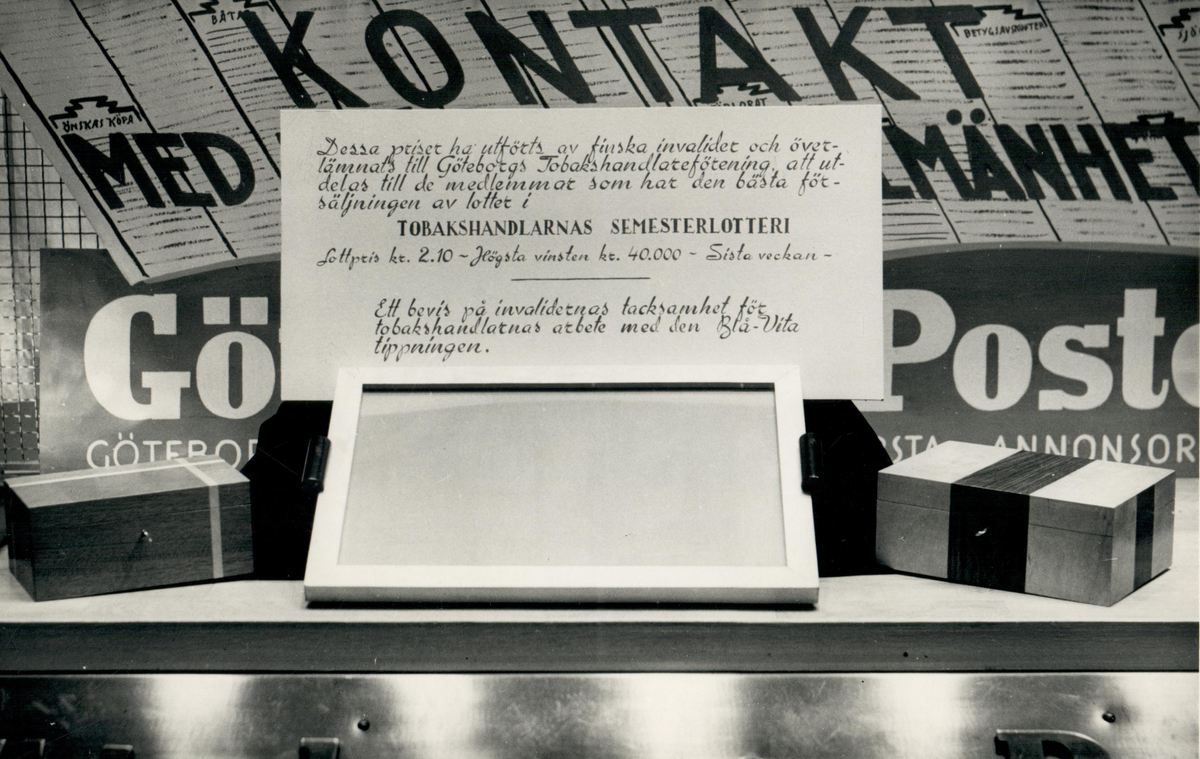 BÅTA
KONTAKT
BETYGSAVSKRIFTER
ÖNSKAS KÖPA
MED
MÄNHET
Dessa priser ha utförts av finska invalider och över-
lämnats till Göteborgs Tobakshandlareförening, att ut-
delas till de medlemmar som har den bästa för-
säljningen av lotter i
TOBAKSHANDLARNAS SEMESTERLOTTERI
Lottpris kr. 2.10 - Högsta vinsten kr. 40.000 - Sista veckan -
Ett bevis på invalidernas tacksamhet för
tobakshandlarnas arbete med den Blå-Vita
tippningen.
Gö Poste
GÖTEBOR STA ANNONSOR